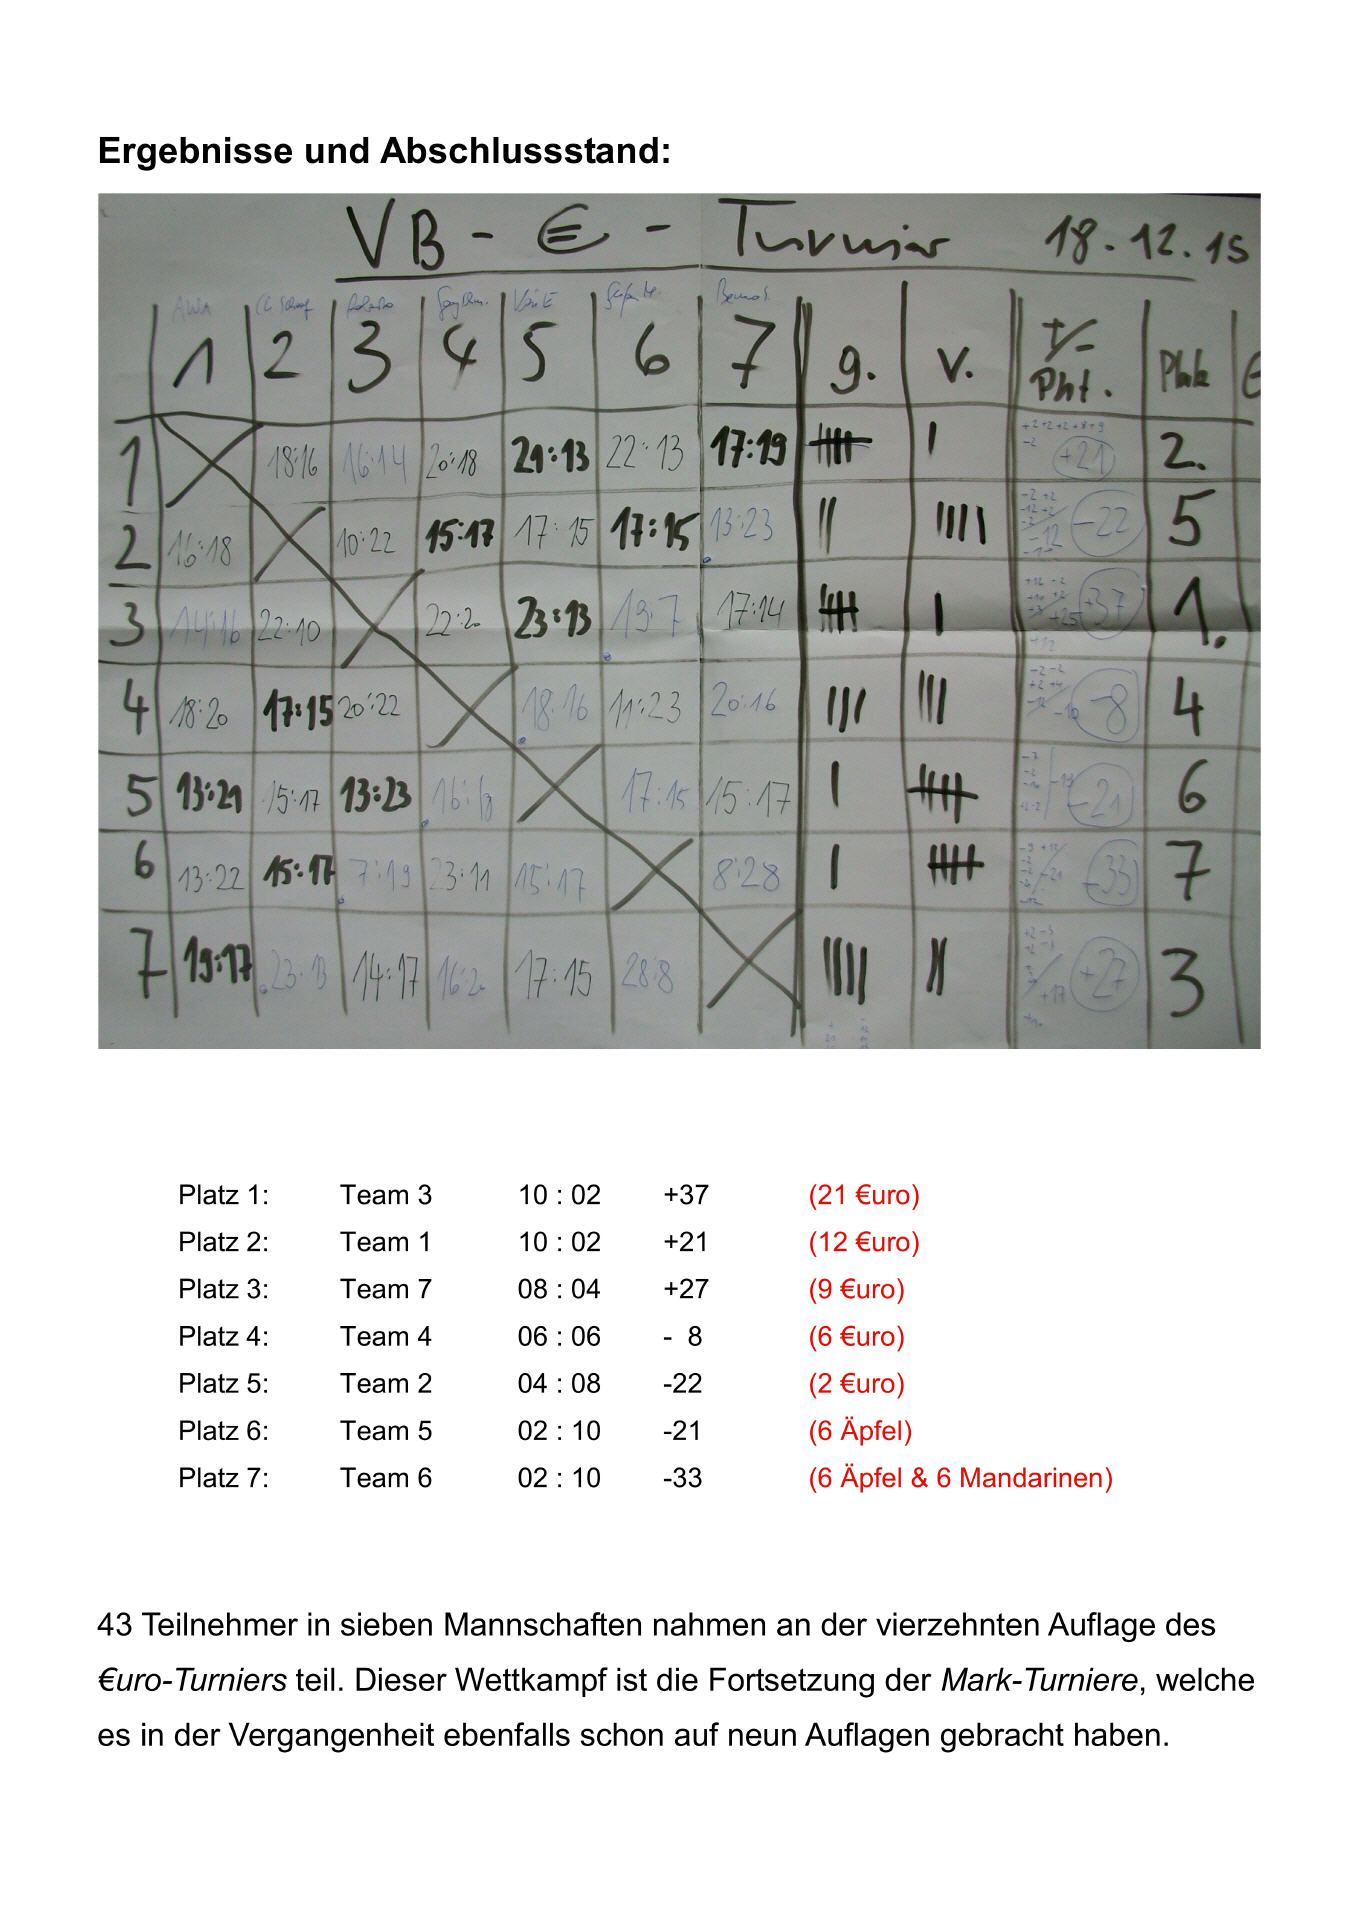 Ergebnisse und Abschlussstand:
VB - € - Turnier 18.12.15
1 2 3 4 5 6 7 g. v. +/- Pkt. Platz €
1 18:16 16:14 20:18 21:13 22:13 17:19 |||| | +21 2.
2 16:18 10:22 15:17 17:15 17:15 13:23 || |||| -22 5
3 14:16 22:10 22:20 23:13 19:7 17:14 |||| | +37 1.
4 18:20 17:15 20:22 18:16 11:23 20:16 ||| ||| -8 4
5 13:21 15:17 13:23 16:18 17:15 15:17 | |||| -21 6
6 13:22 15:17 7:19 23:11 15:17 8:28 | |||| -33 7
7 19:17 23:13 14:17 16:20 17:15 28:8 |||| || +27 3
Platz 1: Team 3 10 : 02 +37 (21 €uro)
Platz 2: Team 1 10 : 02 +21 (12 €uro)
Platz 3: Team 7 08 : 04 +27 (9 €uro)
Platz 4: Team 4 06 : 06 - 8 (6 €uro)
Platz 5: Team 2 04 : 08 -22 (2 €uro)
Platz 6: Team 5 02 : 10 -21 (6 Äpfel)
Platz 7: Team 6 02 : 10 -33 (6 Äpfel & 6 Mandarinen)
43 Teilnehmer in sieben Mannschaften nahmen an der vierzehnten Auflage des
€uro-Turniers teil. Dieser Wettkampf ist die Fortsetzung der Mark-Turniere, welche
es in der Vergangenheit ebenfalls schon auf neun Auflagen gebracht haben.